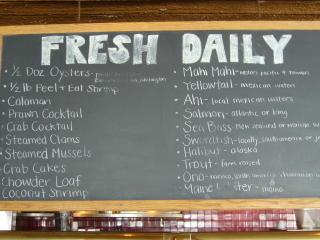 FRESH DAILY
1/2 Doz Oysters-
Washington
1/2 lb Peel & Eat Shrimp
Calamari
Prawn Cocktail
Crab Cocktail
Steamed Clams
Steamed Mussels
Crab Cakes
Chowder Loaf
Coconut Shrimp
Mahi Mahi-waters pacific &
Yellowtail- mexican waters
Ahi- local mexican waters
Salmon- atlantic or king
Sea Bass-
Swordfish-locally,
Halibut- alaska
Trout- farm raised
Ono-
Maine